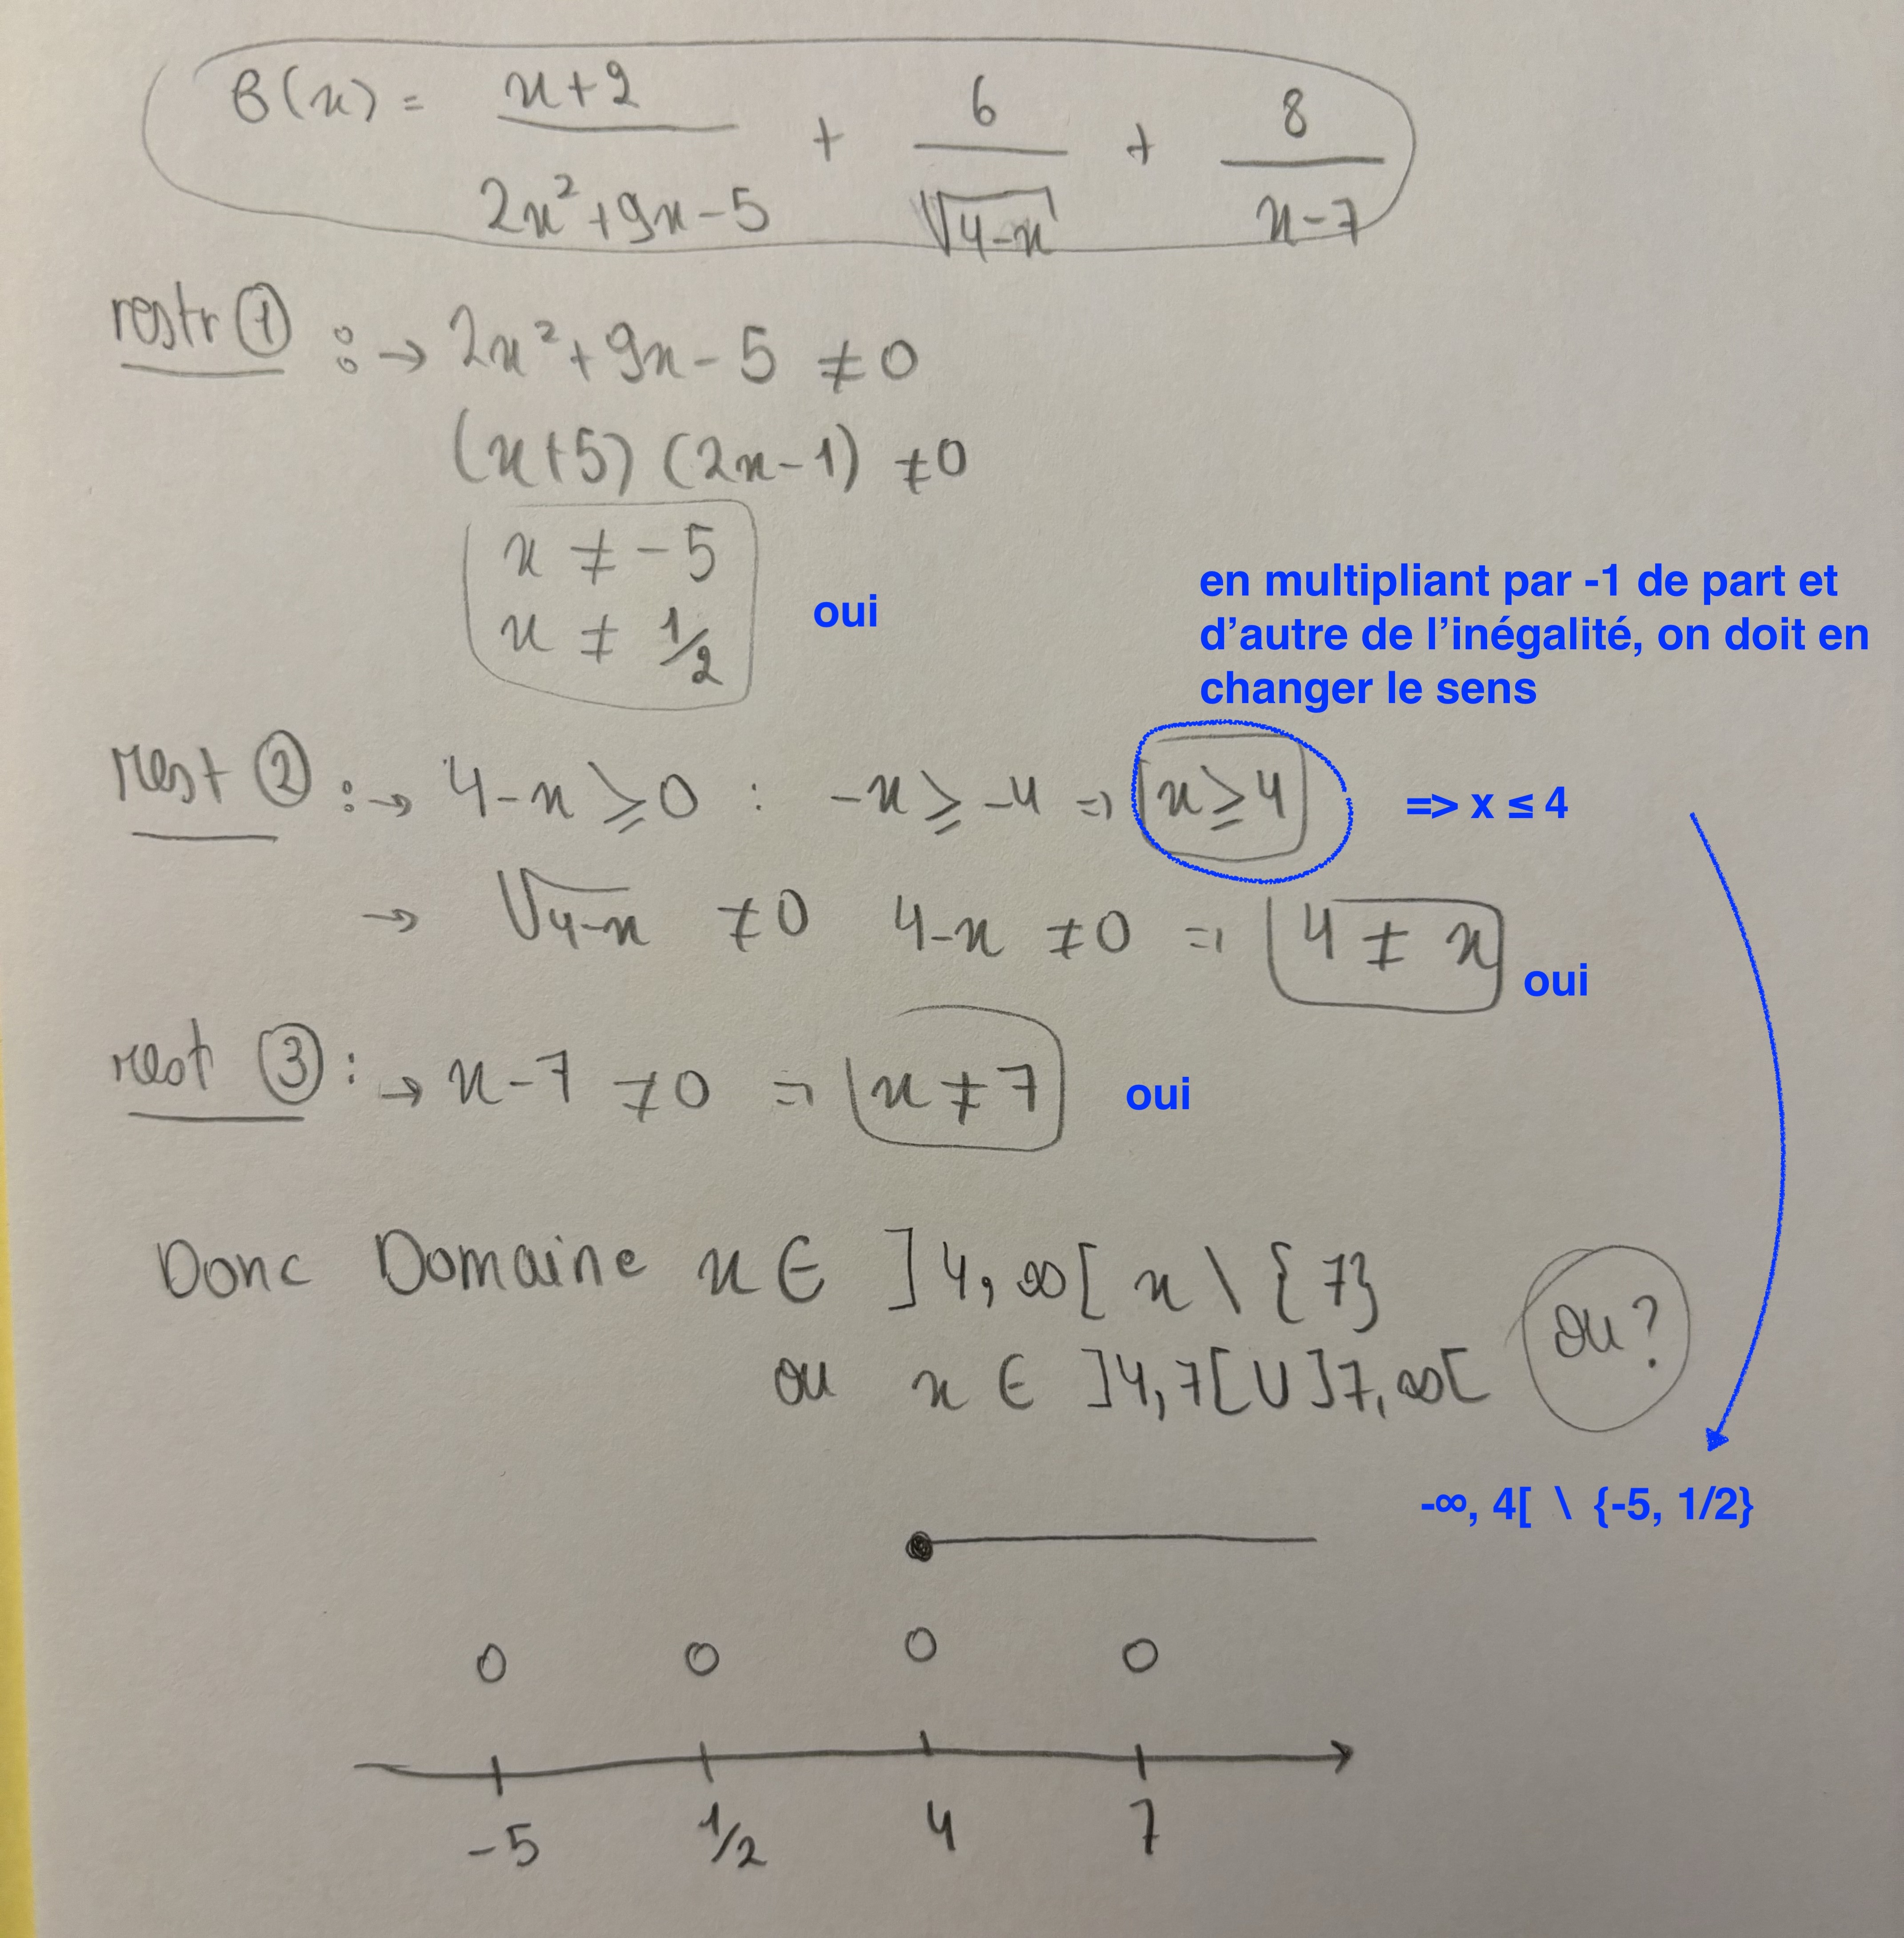 B(x) = x+2 / 2x²+9x-5 + 6 / √4-x + 8 / x-7
restr ① : → 2x²+9x-5 ≠ 0
(x+5) (2x-1) ≠ 0
x ≠ -5
x ≠ 1/2
oui
en multipliant par -1 de part et
d'autre de l'inégalité, on doit en
changer le sens
rest ② : → 4-x ≥ 0 : -x ≥ -4 => x ≥ 4 => x ≤ 4
→ √4-x ≠ 0 4-x ≠ 0 => 4 ≠ x oui
rest ③ : → x-7 ≠ 0 => x ≠ 7 oui
Donc Domaine x ∈ ]4, ∞[ x \ {7}
ou x ∈ ]4,7[ U ]7, ∞[
ou ?
-∞, 4[ \ {-5, 1/2}
-5 1/2 4 7